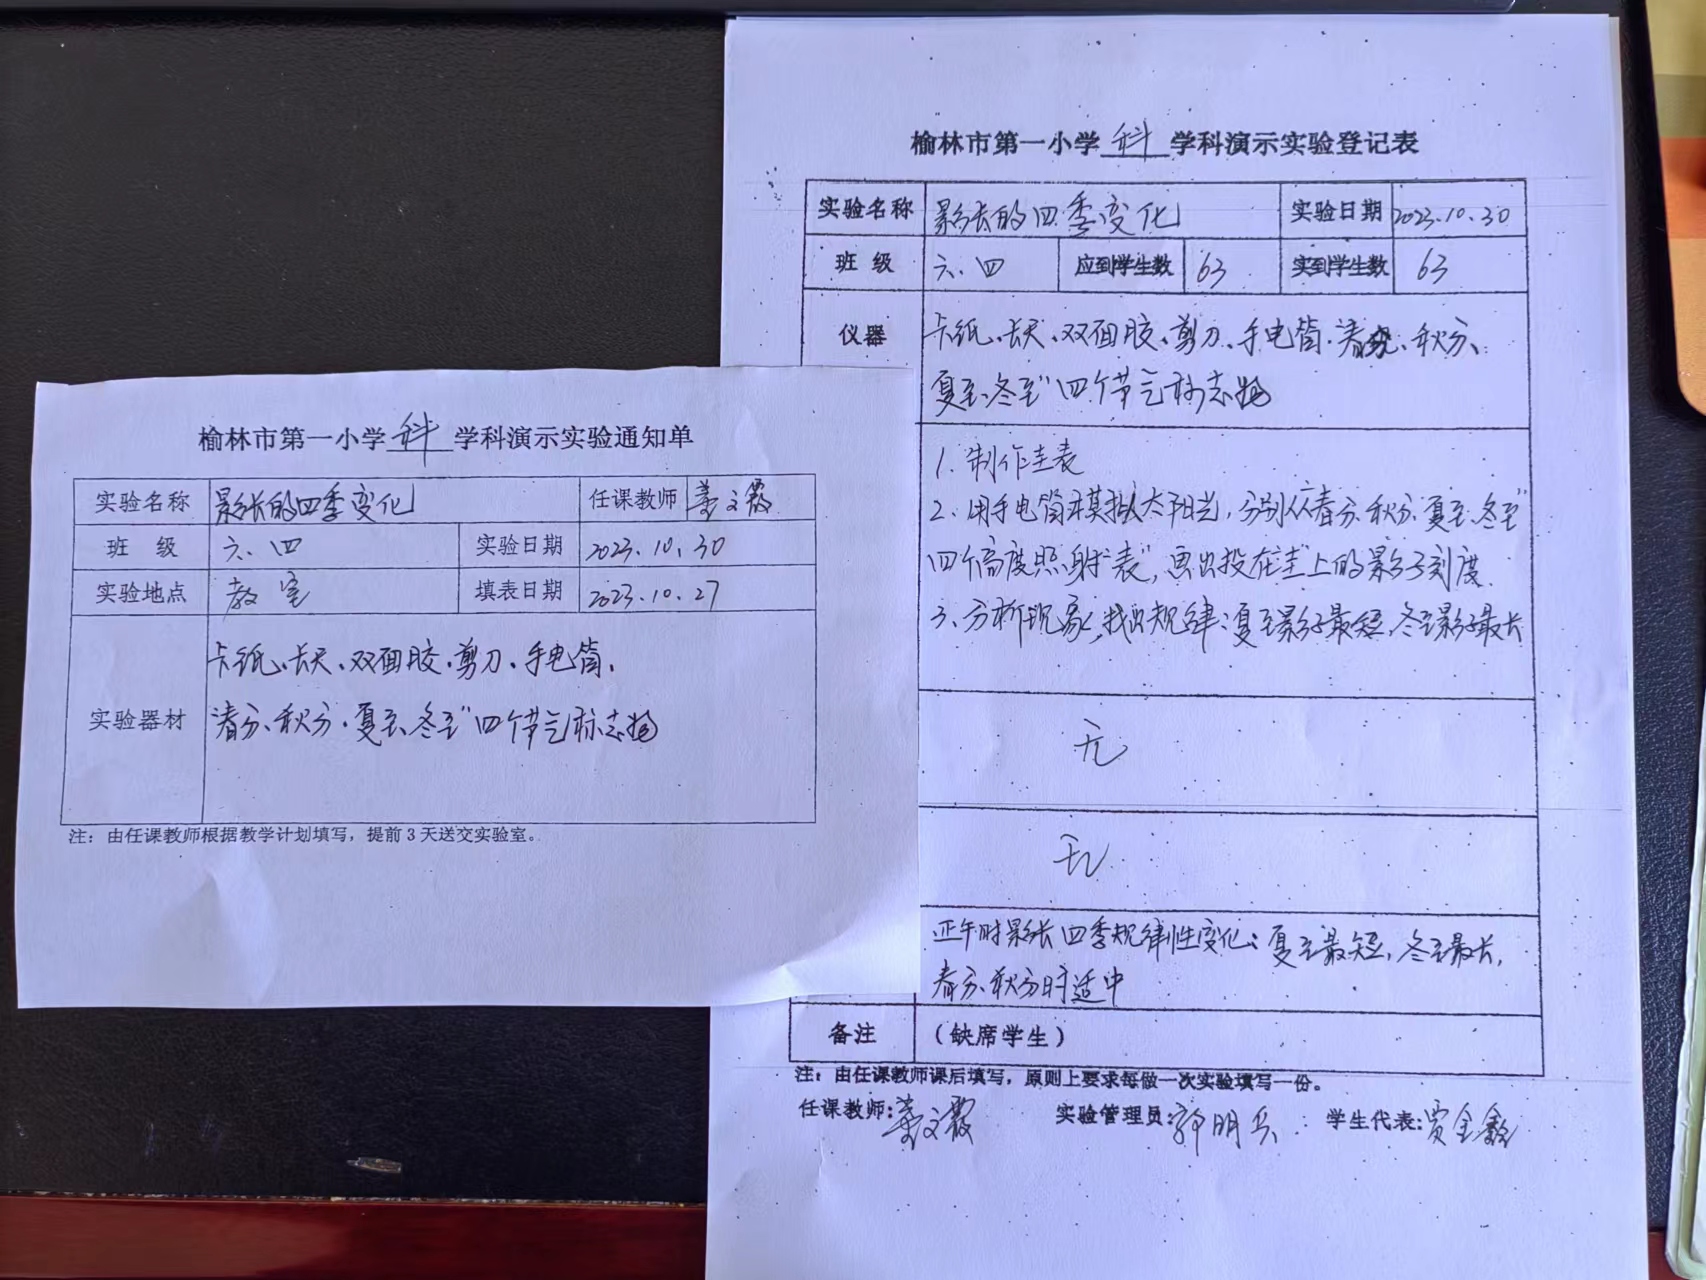 榆林市第一小学 科 学科演示实验通知单
实验名称 影长的四季变化 任课教师 姜文霞
班 级 六、四 实验日期 2023.10.30
实验地点 教室 填表日期 2023.10.27
实验器材
卡纸、长尺、双面胶、剪刀、手电筒、
"春分、秋分、夏至、冬至"四个节气标志物
注：由任课教师根据教学计划填写，提前 3 天送交实验室。
榆林市第一小学 科 学科演示实验登记表
实验名称 影长的四季变化 实验日期 2023.10.30
班 级 六、四 应到学生数 63 实到学生数 63
仪器 卡纸、长尺、双面胶、剪刀、手电筒、"春分、秋分、
夏至、冬至"四个节气标志物
1、制作圭表
2、用手电筒来模拟太阳光，分别从"春分、秋分、夏至、冬至"
四个高度照射"表"，画出投在"圭"上的影子刻度.
3、分析现象，找出规律：夏至影子最短，冬至影子最长
无
无
正午时影长四季规律性变化：夏至最短，冬至最长，
春分、秋分时适中
备注 （缺席学生）
注：由任课教师课后填写，原则上要求每做一次实验填写一份。
任课教师：姜文霞 实验管理员：郭明兵 学生代表：贾金鑫